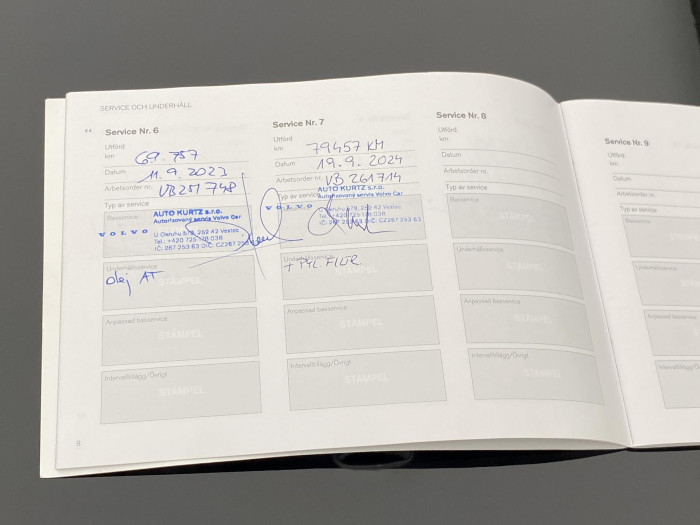 SERVICE OCH UNDERHÅLL
Service Nr. 6
Utförd
km 69.757
Datum 11.9.2023
Arbetsorder nr. VB251748
Typ av service
Basservice
AUTO KURTZ s.r.o.
Autorizovaný servis Volvo Car
VOLVO
U Císruhu 579, 252 42 Vestec
Tel.: +420 725 178 038
IČ: 267 253 63 DIČ: CZ267 253 63
Underhållsservice
olej AT
STÄMPEL
Anpassad basservice
STÄMPEL
Intervalltillägg/Övrigt
STÄMPEL
8
Service Nr. 7
Utförd
km 79457 KM
Datum 19.9.2024
Arbetsorder nr. VB 261714
Typ av service
AUTO KURTZ s.r.o.
Autorizovaný servis Volvo Car
VOLVO
579, 252 42 Vestec
IČ: 267 253 63 DIČ: CZ267 253 63
Underhållsservice
+ PYL. FILTR
Anpassad basservice
STÄMPEL
Intervalltillägg/Övrigt
STÄMPEL
Service Nr. 8
Utförd
km
Datum
Arbetsorder nr.
Typ av service
Basservice
STÄMPEL
Underhållsservice
STÄMPEL
Anpassad basservice
STÄMPEL
Intervalltillägg/Övrigt
STÄMPEL
Service Nr. 9
Utförd
km
Datum
Arbetsorder nr.
Typ av service
Basservice
Underhållsservice
Anpassad basservice